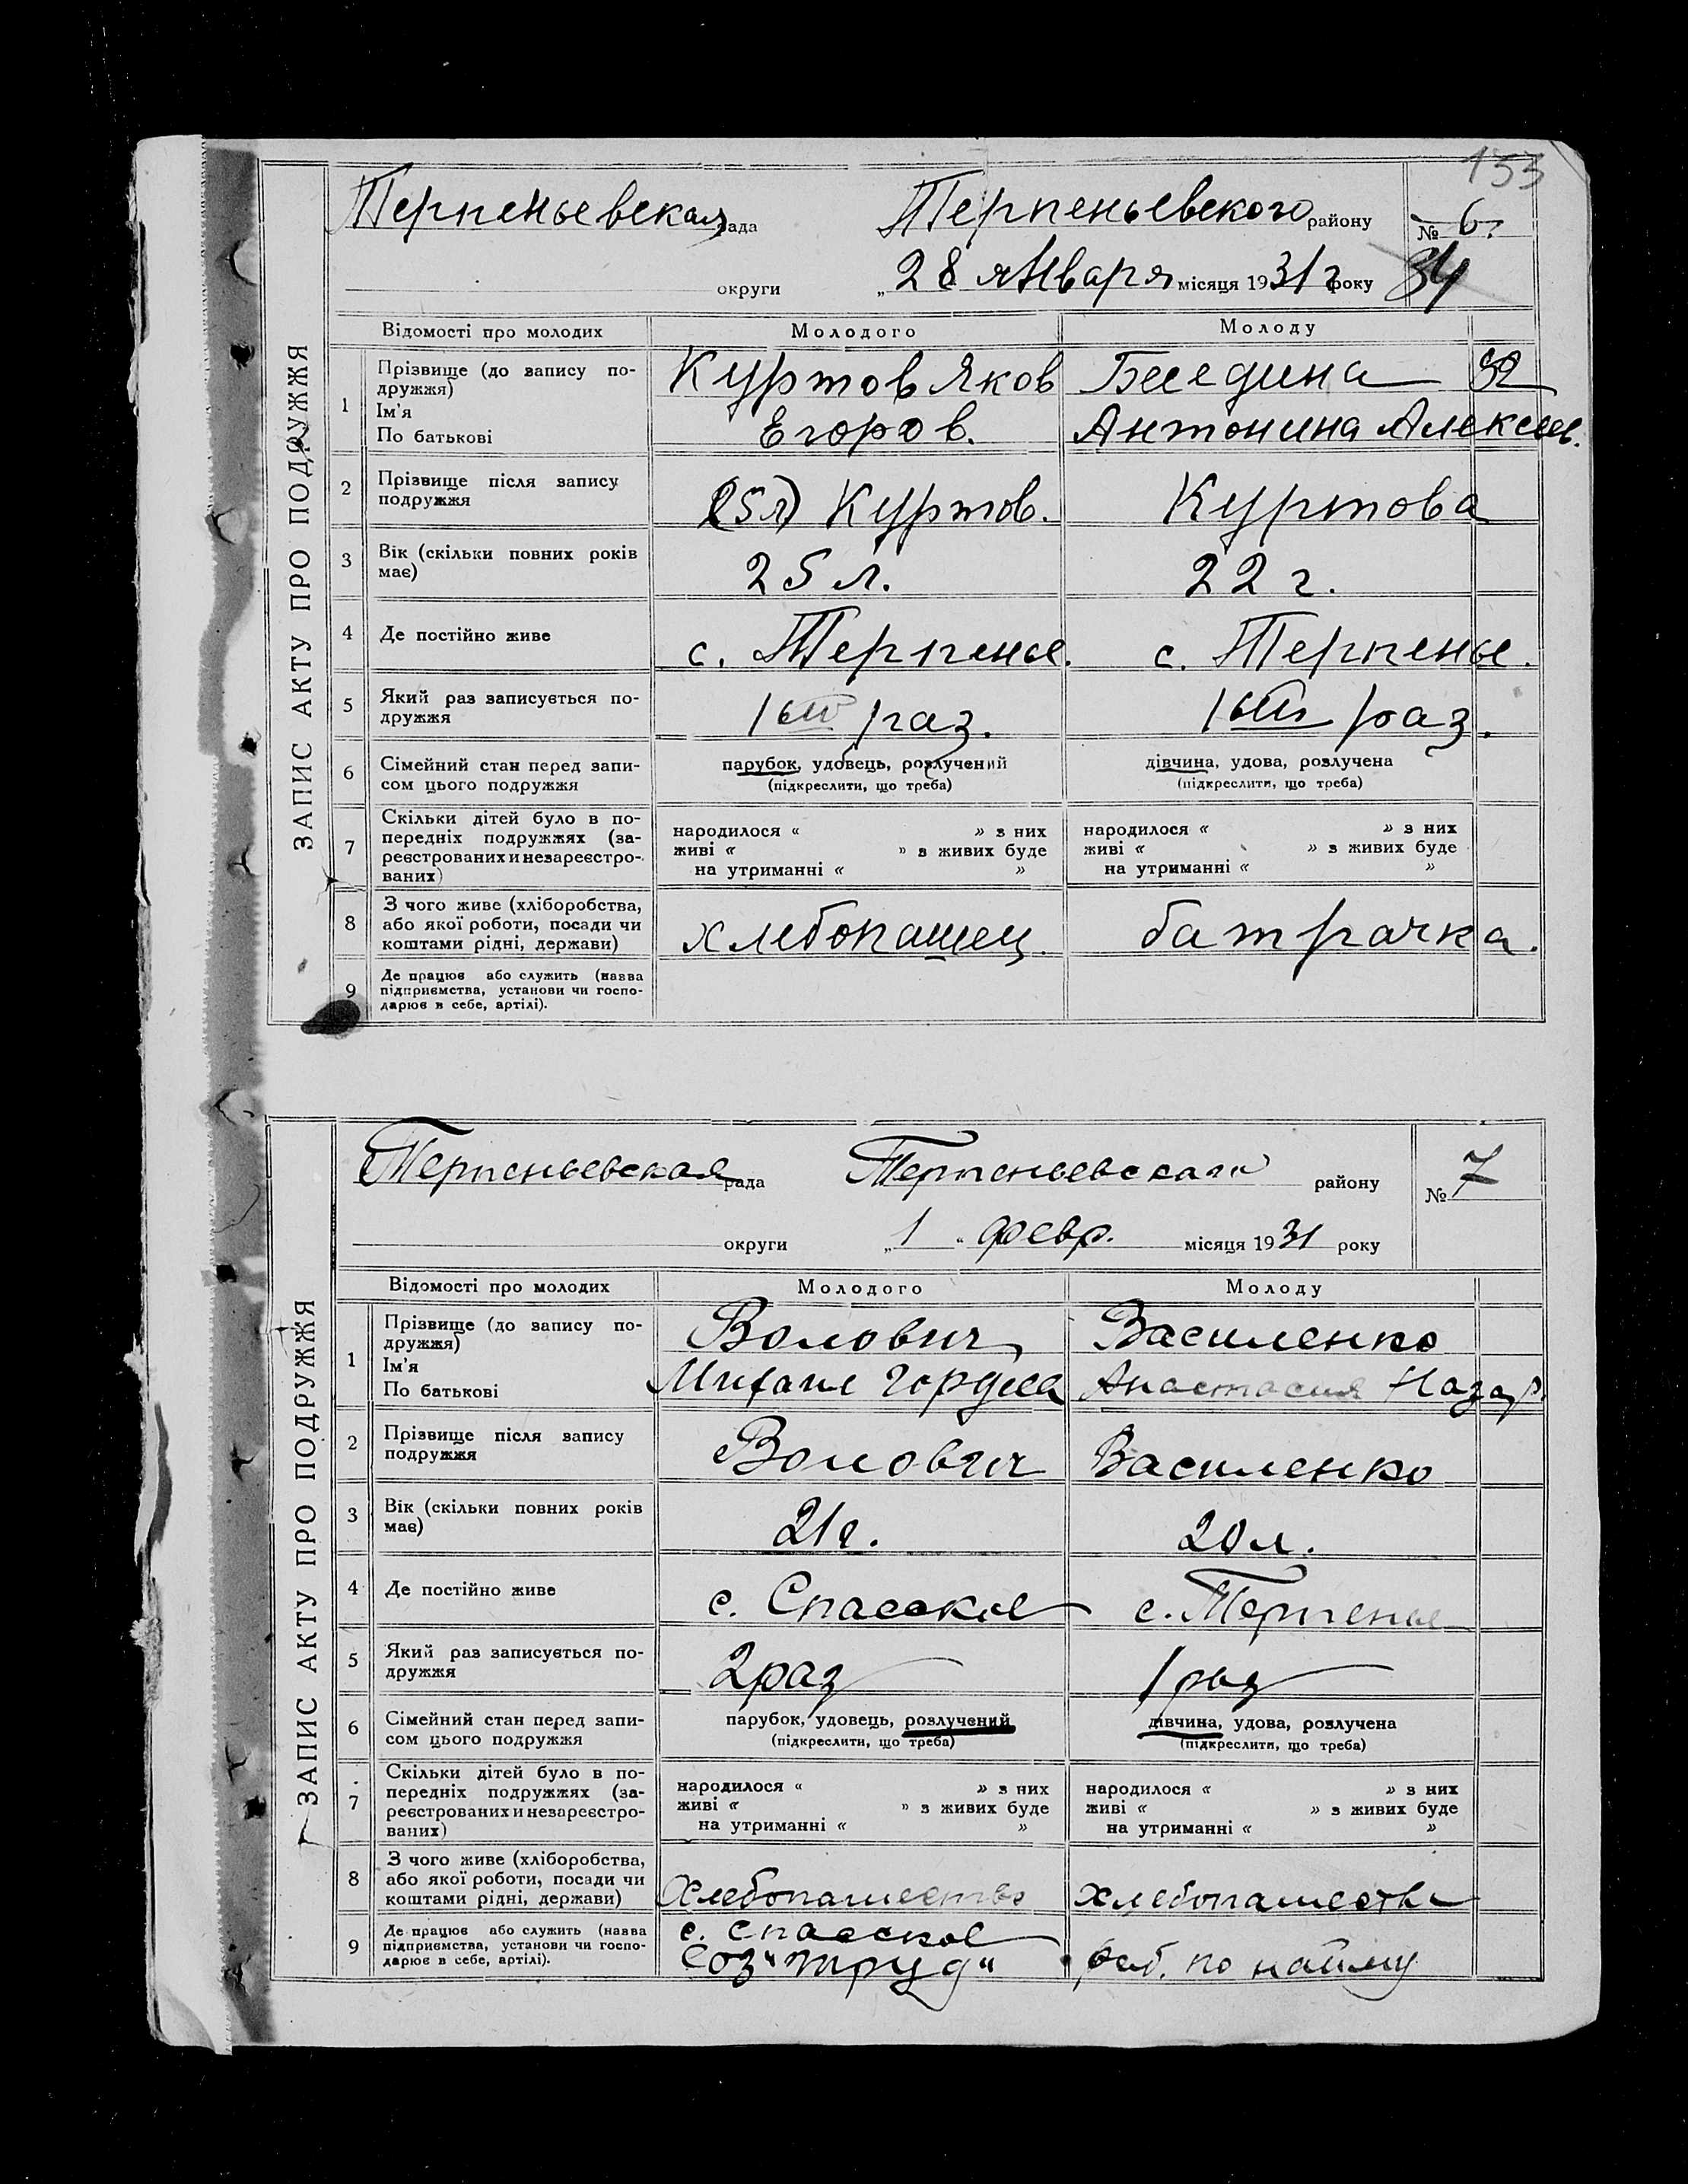 155
ЗАПИС АКТУ ПРО ПОДРУЖЖЯ
Терпеньевская рада Терпеньевского району № 6.
округи „28 января місяця 1931 г року 34
Відомості про молодих Молодого Молоду
1 Прізвище (до запису по-
дружжя)
Ім'я
По батькові
Куртов Яков
Егоров.
Беседина
Антонина Алексеев.
2 Прізвище після запису
подружжя
(25 л) Куртов. Куртова
3 Вік (скільки повних років
має)
25 л. 22 г.
4 Де постійно живе с. Терпенье. с. Терпенье.
5 Який раз записується по-
дружжя
1ый раз. 1ый раз.
6 Сімейний стан перед запи-
сом цього подружжя
парубок, удовець, розлучений
(підкреслити, що треба)
дівчина, удова, розлучена
(підкреслити, що треба)
7 Скільки дітей було в по-
передніх подружжях (за-
реєстрованих и незареєстро-
ваних)
народилося « » з них
живі « » з живих буде
на утриманні « »
народилося « » з них
живі « » з живих буде
на утриманні « »
8 З чого живе (хліборобства,
або якої роботи, посади чи
коштами рідні, держави)
хлебопашец. батрачка.
9 Де працює або служить (назва
підприємства, установи чи госпо-
дарює в себе, артілі).
ЗАПИС АКТУ ПРО ПОДРУЖЖЯ
Терпеньевская рада Терпеньевскаго району № 7
округи „1“ февр. місяця 1931 року
Відомості про молодих Молодого Молоду
1 Прізвище (до запису по-
дружжя)
Ім'я
По батькові
Волович
Михаил Гордеев
Василенко
Анастасия Назар.
2 Прізвище після запису
подружжя
Волович Василенко
3 Вік (скільки повних років
має)
21 г. 20 л.
4 Де постійно живе с. Спасское с. Терпенье
5 Який раз записується по-
дружжя
2 раз 1 раз
6 Сімейний стан перед запи-
сом цього подружжя
парубок, удовець, розлучений
(підкреслити, що треба)
дівчина, удова, розлучена
(підкреслити, що треба)
7 Скільки дітей було в по-
передніх подружжях (за-
реєстрованих и незареєстро-
ваних)
народилося « » з них
живі « » з живих буде
на утриманні « »
народилося « » з них
живі « » з живих буде
на утриманні « »
8 З чого живе (хліборобства,
або якої роботи, посади чи
коштами рідні, держави)
Хлебопашество хлебопашество
9 Де працює або служить (назва
підприємства, установи чи госпо-
дарює в себе, артілі).
с. Спасское
Соз „Труд“
раб. по найму